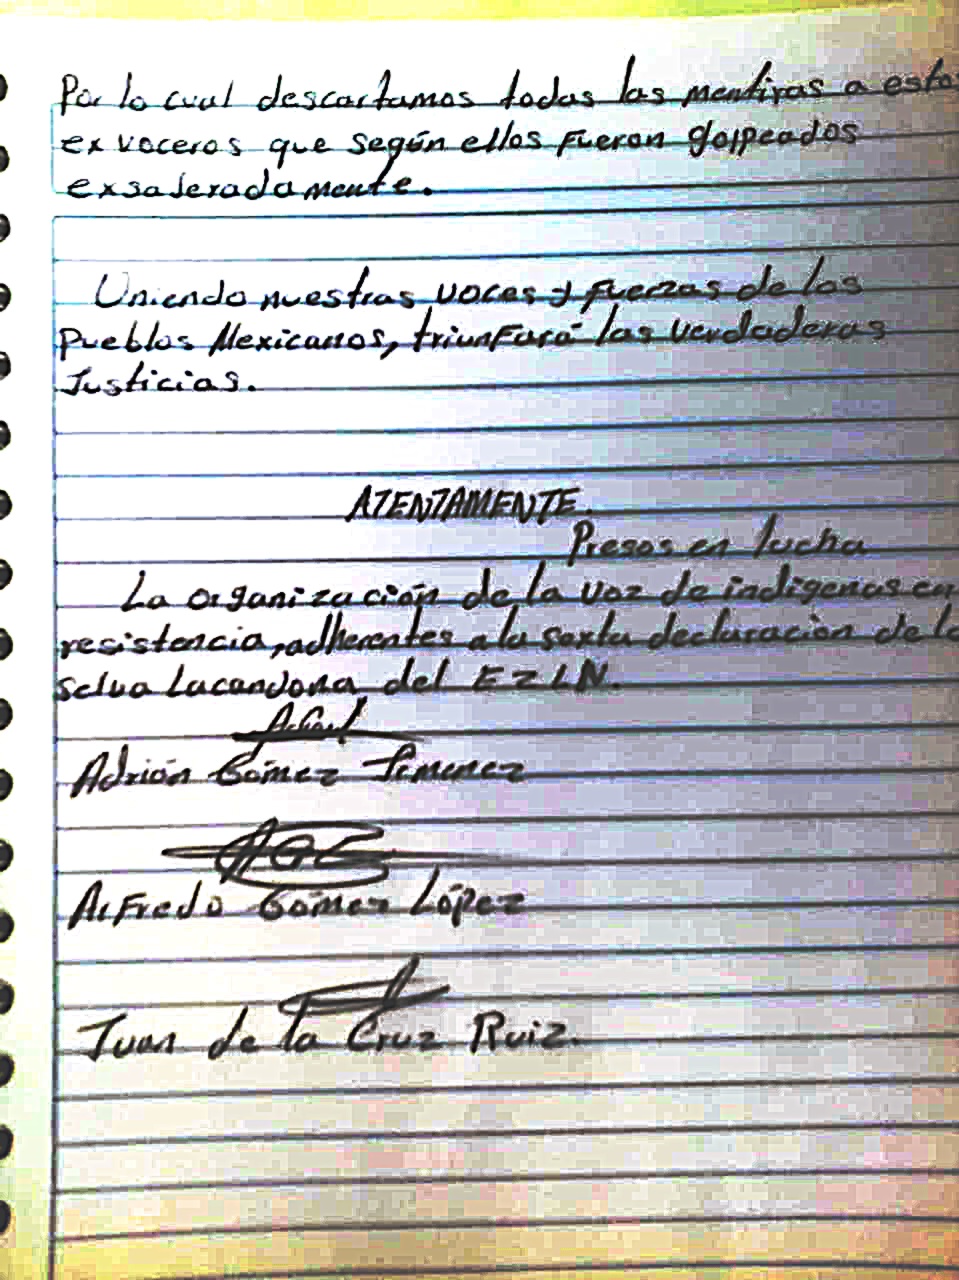 Por lo cual descartamos todas las mentiras a estos
ex voceros que según ellos fueron golpeados
exsajeradamente.
Uniendo nuestras voces y fuerzas de los
Pueblos Mexicanos, triunfará las verdaderas
Justicias.
ATENTAMENTE.
Presos en lucha
La organización de la voz de indigenas en
resistencia, adherentes a la sexta declaracion de la
selva Lacandona del EZLN.
Adrián Gómez Jimenez
Alfredo Gómez López
Juan de la Cruz Ruiz.